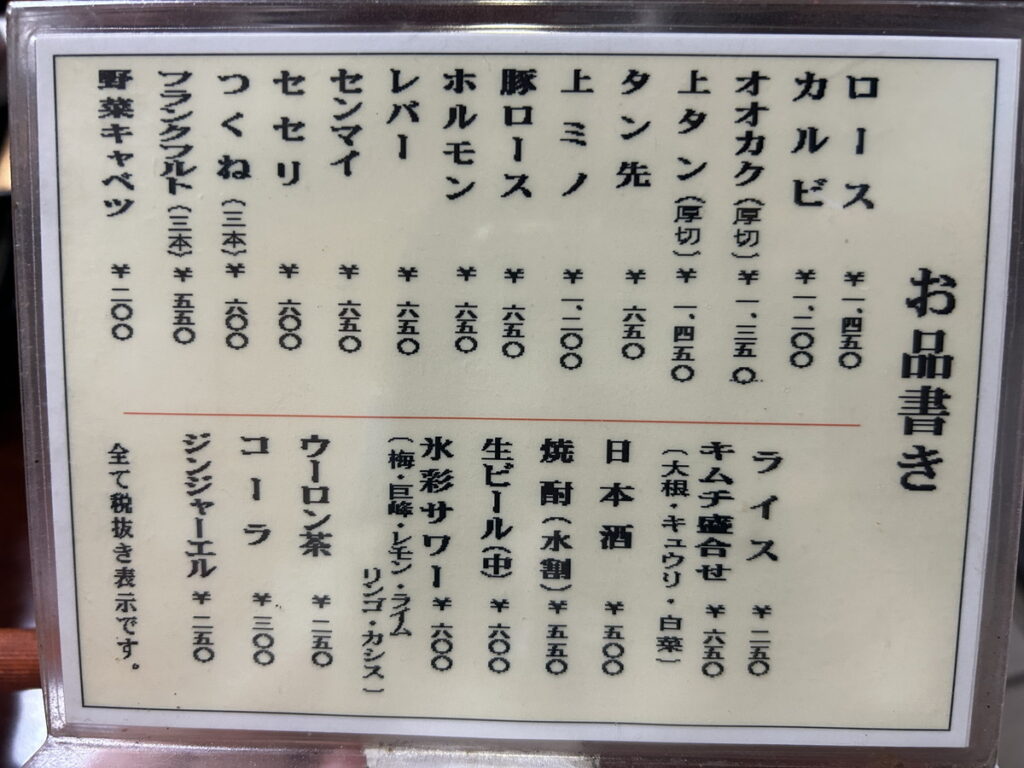 お品書き
ロース ¥一、四五〇
カルビ ¥一、二〇〇
オオカク(厚切) ¥一、三五〇
上タン(厚切) ¥一、四五〇
タン先 ¥六五〇
上ミノ ¥一、二〇〇
豚ロース ¥六五〇
ホルモン ¥六五〇
レバー ¥六五〇
センマイ ¥六五〇
セセリ ¥六〇〇
つくね(三本) ¥六〇〇
フランクフルト(三本) ¥五五〇
野菜キャベツ ¥二〇〇
ライス ¥二五〇
キムチ盛合せ ¥六五〇
(大根・キュウリ・白菜)
日本酒 ¥五〇〇
焼酎(水割) ¥五五〇
生ビール(中) ¥六〇〇
氷彩サワー ¥六〇〇
(梅・巨峰・レモン・ライム
リンゴ・カシス)
ウーロン茶 ¥二五〇
コーラ ¥三〇〇
ジンジャーエル ¥二五〇
全て税抜き表示です。